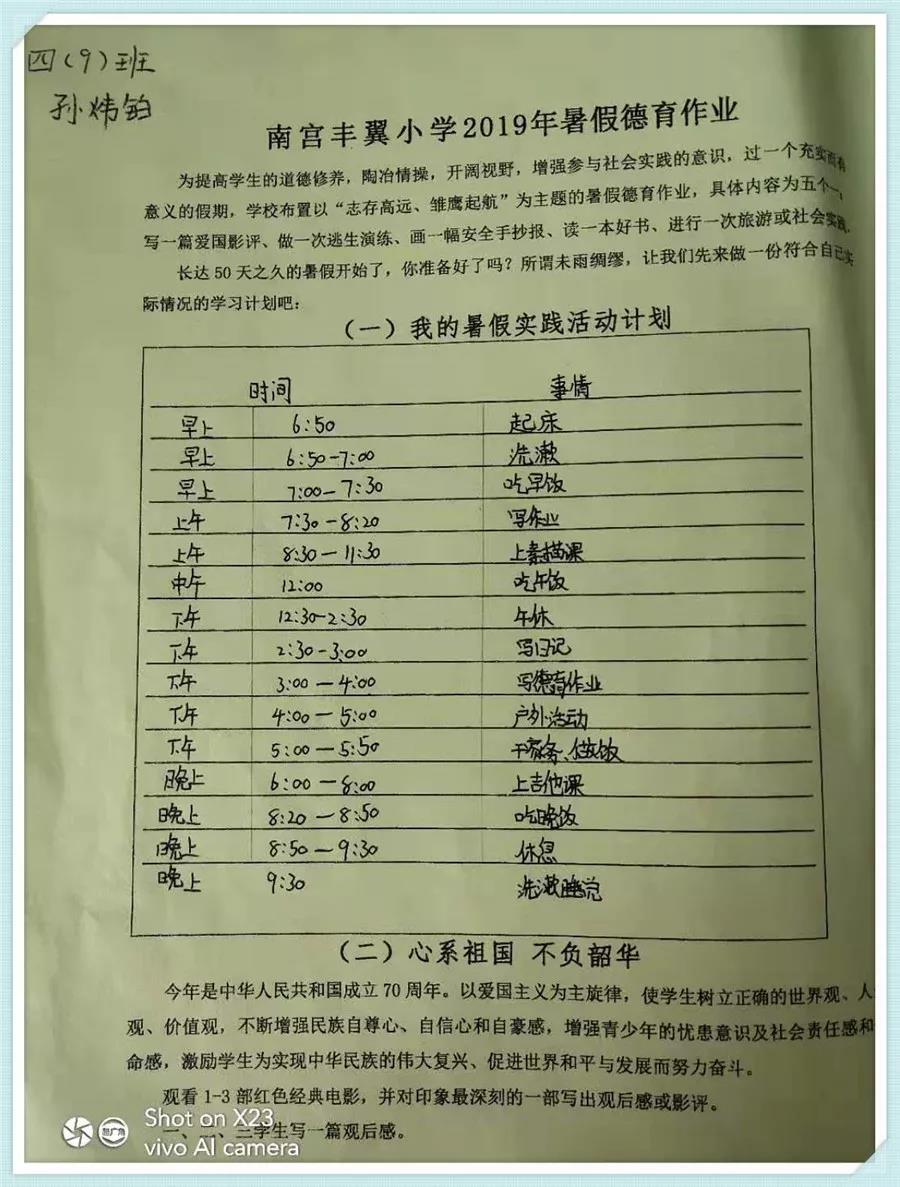 四（9）班
孙炜铂
南宫丰翼小学2019年暑假德育作业
为提高学生的道德修养，陶冶情操，开阔视野，增强参与社会实践的意识，过一个充实而有
意义的假期，学校布置以“志存高远、雏鹰起航”为主题的暑假德育作业，具体内容为五个一，
写一篇爱国影评、做一次逃生演练、画一幅安全手抄报、读一本好书、进行一次旅游或社会实践.
长达 50 天之久的暑假开始了，你准备好了吗？所谓未雨绸缪，让我们先来做一份符合自己实
际情况的学习计划吧：
（一）我的暑假实践活动计划
时间 事情
早上 6:50 起床
早上 6:50-7:00 洗漱
早上 7:00-7:30 吃早饭
上午 7:30-8:20 写作业
上午 8:30-11:30 上素描课
中午 12:00 吃午饭
下午 12:30-2:30 午休
下午 2:30-3:00 写日记
下午 3:00-4:00 写德育作业
下午 4:00-5:00 户外活动
下午 5:00-5:50 干家务、做饭
晚上 6:00-8:00 上吉他课
晚上 8:20-8:50 吃晚饭
晚上 8:50-9:30 休息
晚上 9:30 洗漱睡觉
（二）心系祖国 不负韶华
今年是中华人民共和国成立 70 周年。以爱国主义为主旋律，使学生树立正确的世界观、人
观、价值观，不断增强民族自尊心、自信心和自豪感，增强青少年的忧患意识及社会责任感和
命感，激励学生为实现中华民族的伟大复兴、促进世界和平与发展而努力奋斗。
观看 1-3 部红色经典电影，并对印象最深刻的一部写出观后感或影评。
一、二、三学生写一篇观后感。
Shot on X23
vivo AI camera